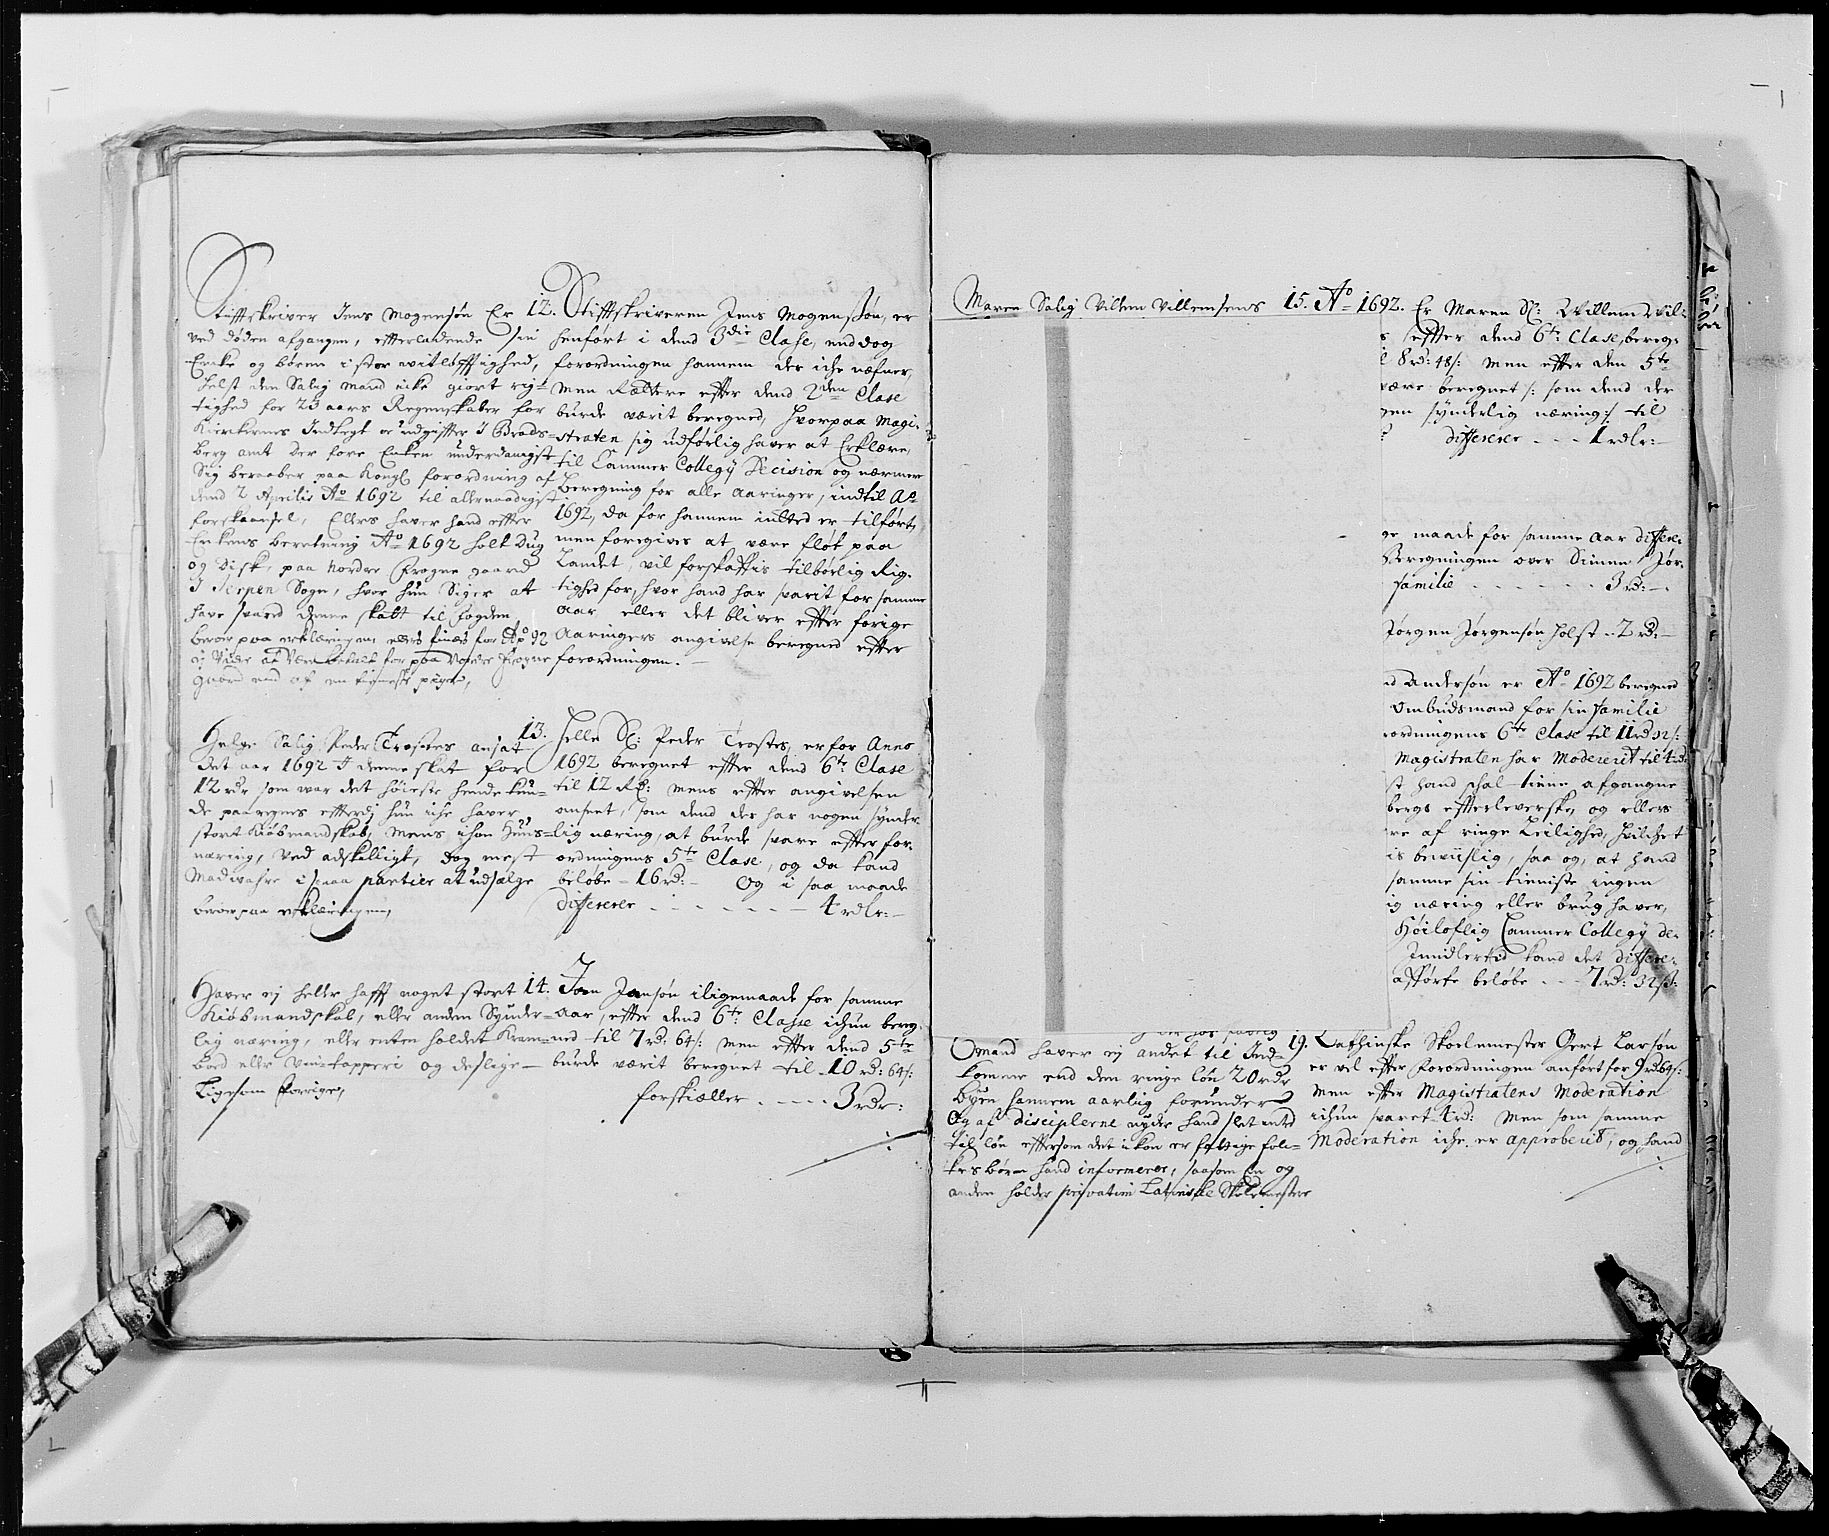 Stiftskriver Jens Mogensøn Er
ved døden afgangen, effterladende sin
Encke og børn i stor witløfftighed,
helst den Salig mand icke giort rig-
tighed for 23 aars Regenskaber for
Kierkernes Indtegt oc udgiffter I Brads-
berg amt Der fore Enken underdanigst
Sig beraaber paa Kongl forordning af
dend 2 Aprilis Ao 1692 til allernaadigst
forskaansel, Ellers haver hand effter
Enkens beretning Ao 1692 holt Dug
og Disk, paa Nordre Frogne gaard
I Sogn, hvor hun Siger at
have svared denne skatt til fogden
beroer paa erklæringen, ellers for Ao 92
gaard
12. Stifftskriveren Jens Mogensøn, er
henført i dend 3die Clase, end dog
forordningen hannem der iche næfner,
Men Rættere effter dend 2den Clase
burde værit beregned, hvorpaa Magi-
straten sig udførlig haver at Erklære,
til Cammer Collegy Decision og nærmere
Beregning for alle aaringer, indtil Ao
1692, da for hannem intted er tilført,
men foregives at være fløt paa
Landet, vil forskaffis tilbørlig Rig-
tighed for, hvor hand har svarit for samme
aar eller det bliver effter forige
Aaringers angivelse beregned effter
forordningen.
Helge Salig Peder Trostes ansat
Det aar 1692 I denne skat for
12 rdr som war det høieste hende kun-
de paaregnes efftersom hun iche haver
stort Kiøbmandskab, mens ichun Huus-
næring, ved adskilligt, dog mest
Madvahre i smaa partier at udsælge
beroer paa erklæringen,
13. Helle Sl: Peder Trostes, er for Anno
1692 beregnet effter dend 6te Clase
til 12 Rd: Mens effter angivelsen
anseet, som dend der har nogen synder-
lig næring, at burde svare effter for-
ordningens 5te Clase, og da kand
beløbe - 16 rd: - Og i saa maade
differerer - - - - - - 4 rdlr: -
Haver ej heller hafft noget stort
Kiøbmandskab, eller anden Synder-
lig næring, eller enten holdet Kram-
bod eller Vin-tapperi og deslige
Ligesom forrige,
14. Jon Jonsøn iligemaade for samme
aar, effter dend 6te Classe ichun bereg-
ned til 7 rd: 64 s: Men effter dend 5te
burde værit beregnet til 10 rd: 64 s:
forskiæller - - - - 3 rdr:
Maren Salig Villem Villemsens
15. Ao 1692. Er Maren Sl: Willum Wil-
s effter dend 6te Clase, bereg-
l 8 rd: 48 s: Men effter den 5te
være beregnet /: som dend der
gen synderlig næring :/ til
differerer - - - 1 rdlr: -
ge maade for samme aar differe-
Beregningen over Simen Jør-
familie - - - - - - 3 rd: -
Jørgen Jørgensøn Holst - 2 rd: -
d Andersøn er Ao 1692 beregned
Ombudsmand for sin familie
ordningens 6te Clase til 11 rd 32 s:
Magistraten har Modererit til 4 rd:
st hand skal tiene afgangne
bergs effterleverske, og ellers
re af ringe Leilighed, hvilchet
is beviislig, saa og, at hand
samme sin tieniste ingen
ig næring eller brug haver,
Høiloflig Cammer Collegy de-
Imidlertid kand det differe-
afførte beløbe - - - 7 rd: 32 s:
Omand haver ej andet til Ind-
komme end den ringe løn 20 rdr
Byen hannem aarlig forunder
Og af disciplerne nyder hand slet intd
til løn effersom det ickon er fattige fol-
kes børn hand informerer, saasom En og
anden holder privatim Latinske Skolemestere
19. Lathinske Skolemester Gert Larsøn
er vel effter forordningen anført for 9 rd 64 s:
Men effter Magistratens Moderation
ichun svaret 4 rd: Men som samme
Moderation iche er approberit, og hand